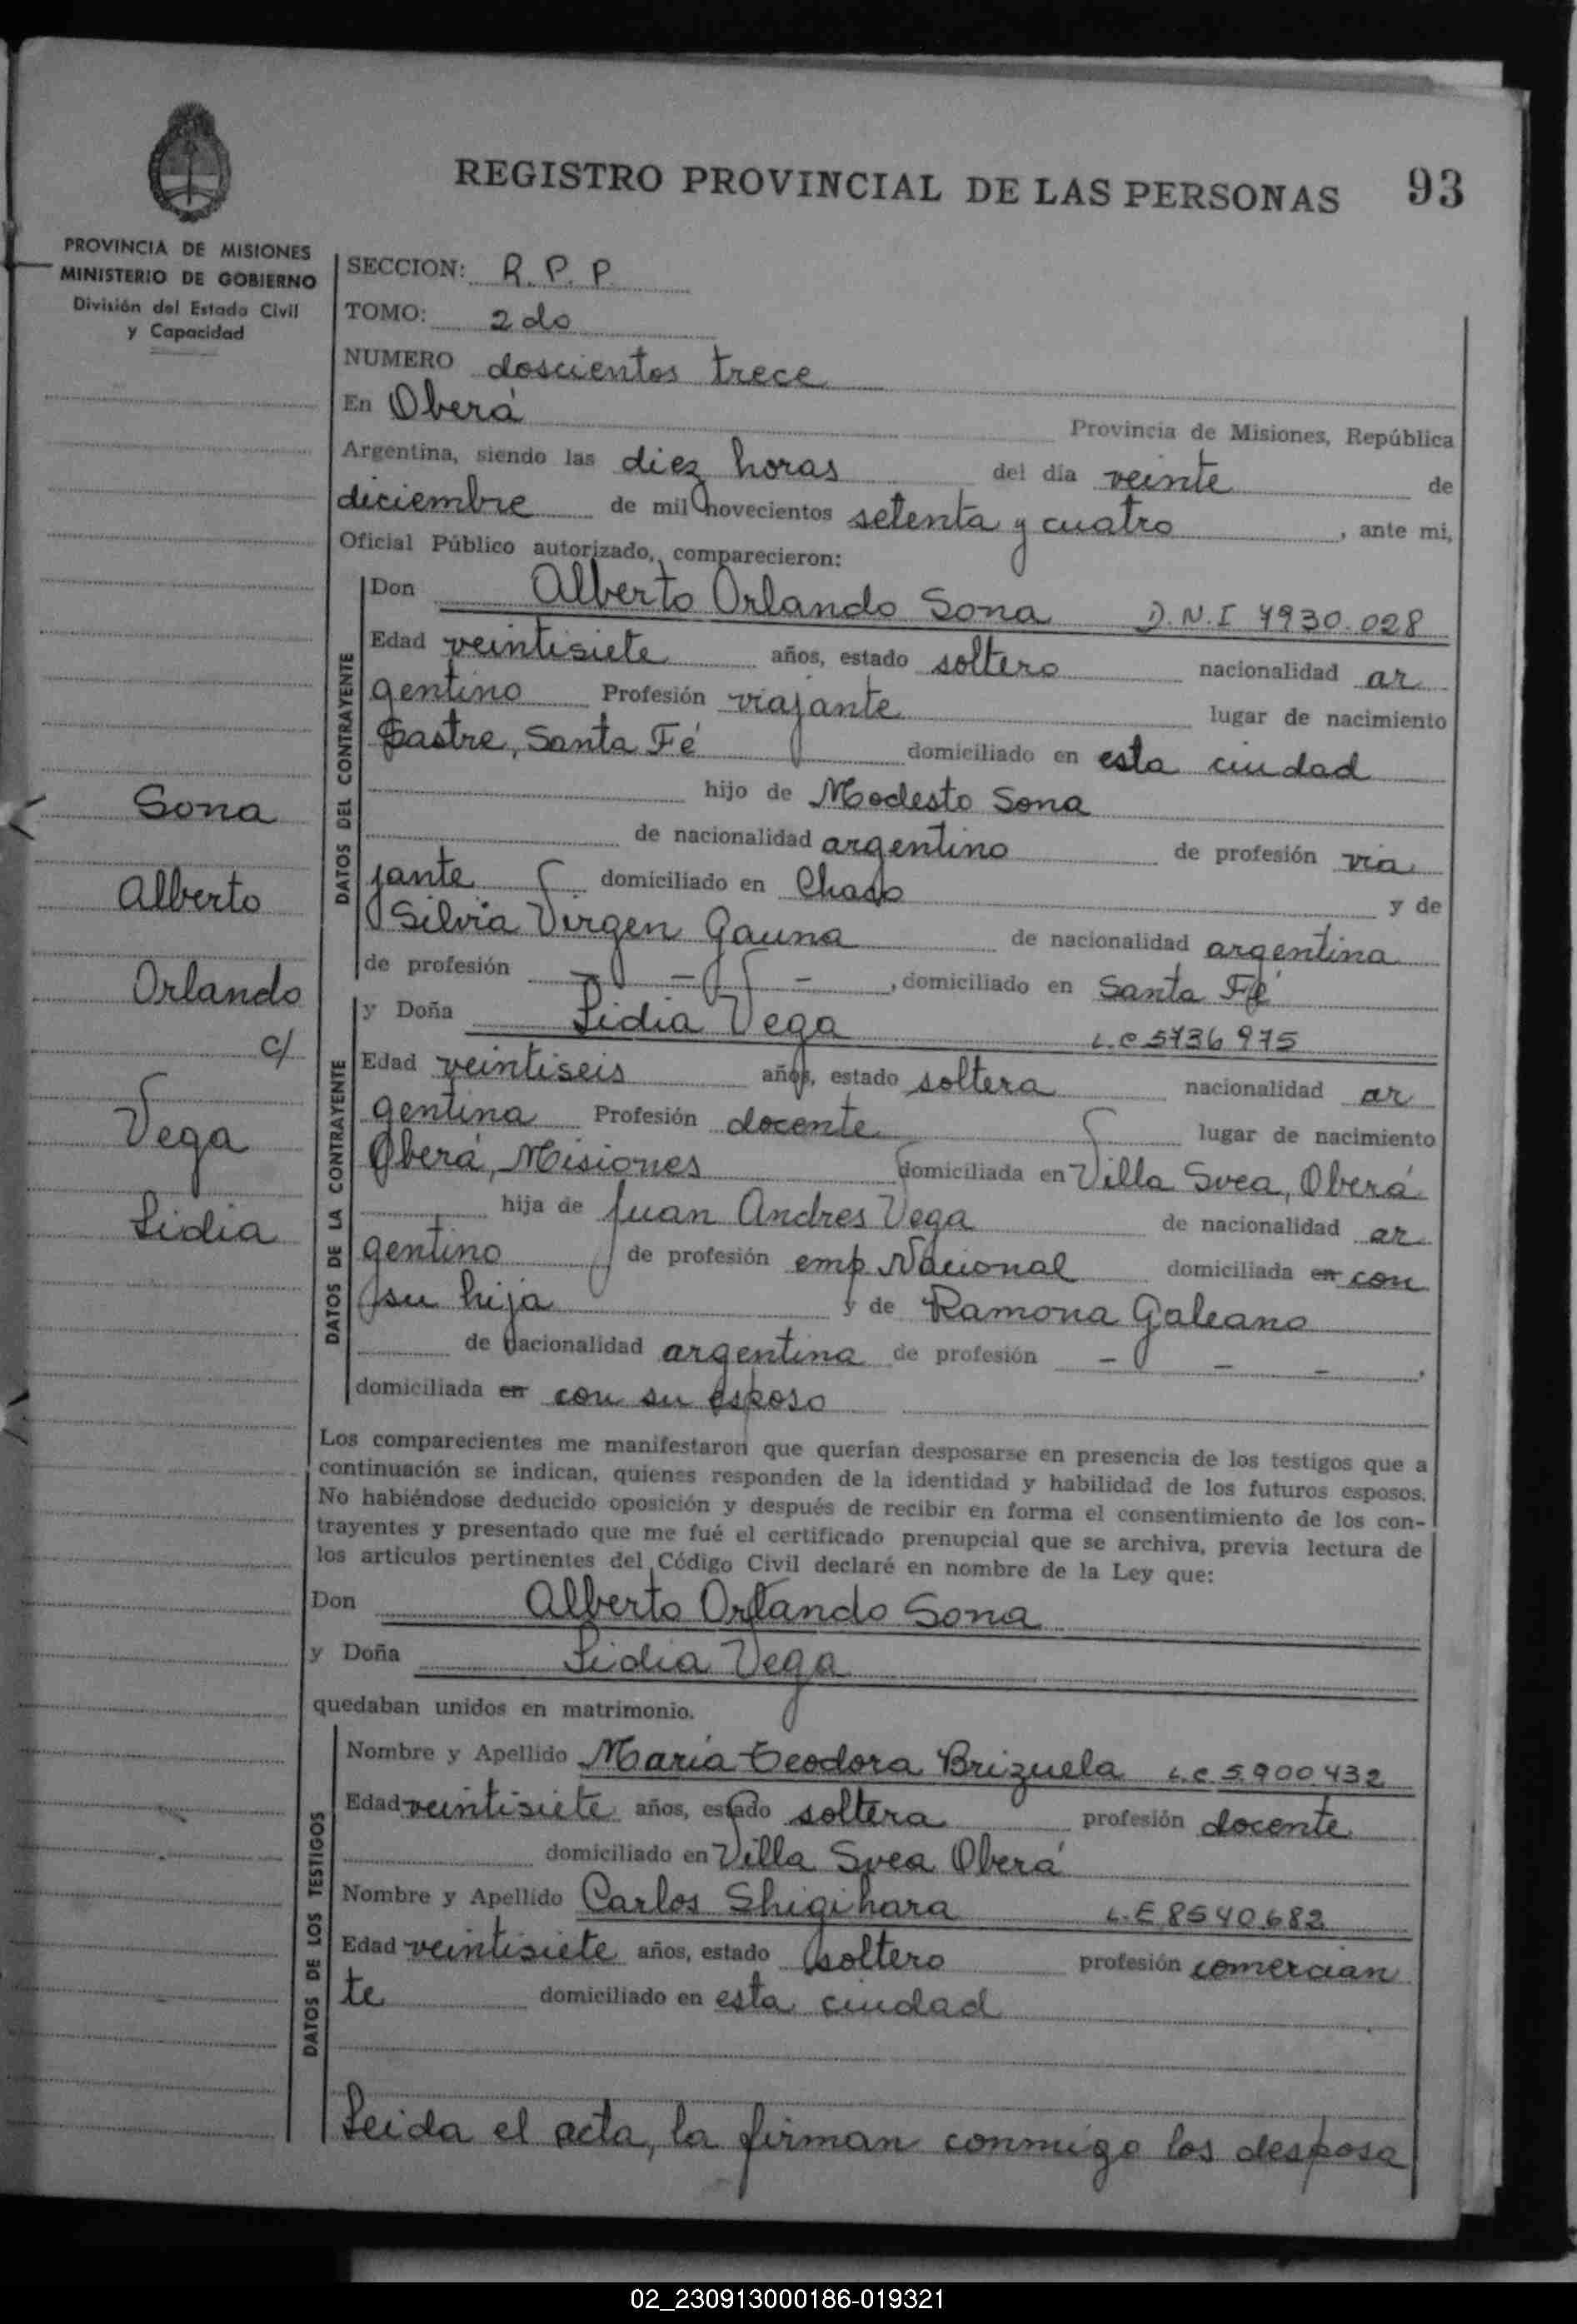 REGISTRO PROVINCIAL DE LAS PERSONAS 93
PROVINCIA DE MISIONES
MINISTERIO DE GOBIERNO
División del Estado Civil
y Capacidad
SECCION: R. P. P.
TOMO: 2do
NUMERO doscientos trece
En Oberá Provincia de Misiones, República
Argentina, siendo las diez horas del día veinte de
diciembre de mil novecientos setenta y cuatro, ante mi,
Oficial Público autorizado, comparecieron:
DATOS DEL CONTRAYENTE
Don Alberto Orlando Sona D.N.I 7930.028
Edad veintisiete años, estado soltero nacionalidad ar
gentino Profesión viajante lugar de nacimiento
Sastre, Santa Fé domiciliado en esta ciudad
hijo de Modesto Sona
de nacionalidad argentino de profesión via
jante domiciliado en Chaco y de
Silvia Virgen Gauna de nacionalidad argentina
de profesión - - -, domiciliado en Santa Fé
DATOS DE LA CONTRAYENTE
y Doña Lidia Vega L.C 5736975
Edad veintiseis años, estado soltera nacionalidad ar
gentina Profesión docente lugar de nacimiento
Oberá, Misiones domiciliada en Villa Svea, Oberá
hija de Juan Andres Vega de nacionalidad ar
gentino de profesión emp Nacional domiciliada en con
su hija y de Ramona Galeano
de nacionalidad argentina de profesión - - -,
domiciliada en con su esposo
Sona
Alberto
Orlando
c/
Vega
Lidia
Los comparecientes me manifestaron que querían desposarse en presencia de los testigos que a
continuación se indican, quienes responden de la identidad y habilidad de los futuros esposos.
No habiéndose deducido oposición y después de recibir en forma el consentimiento de los con-
trayentes y presentado que me fué el certificado prenupcial que se archiva, previa lectura de
los artículos pertinentes del Código Civil declaré en nombre de la Ley que:
Don Alberto Orlando Sona
y Doña Lidia Vega
quedaban unidos en matrimonio.
DATOS DE LOS TESTIGOS
Nombre y Apellido María Teodora Brizuela L.C 5.900.432
Edad veintisiete años, estado soltera profesión docente
domiciliado en Villa Svea Oberá
Nombre y Apellido Carlos Shigihara L.E 8540.682
Edad veintisiete años, estado soltero profesión comercian
te domiciliado en esta ciudad
Leida el acta, la firman conmigo los desposa
02_230913000186-019321